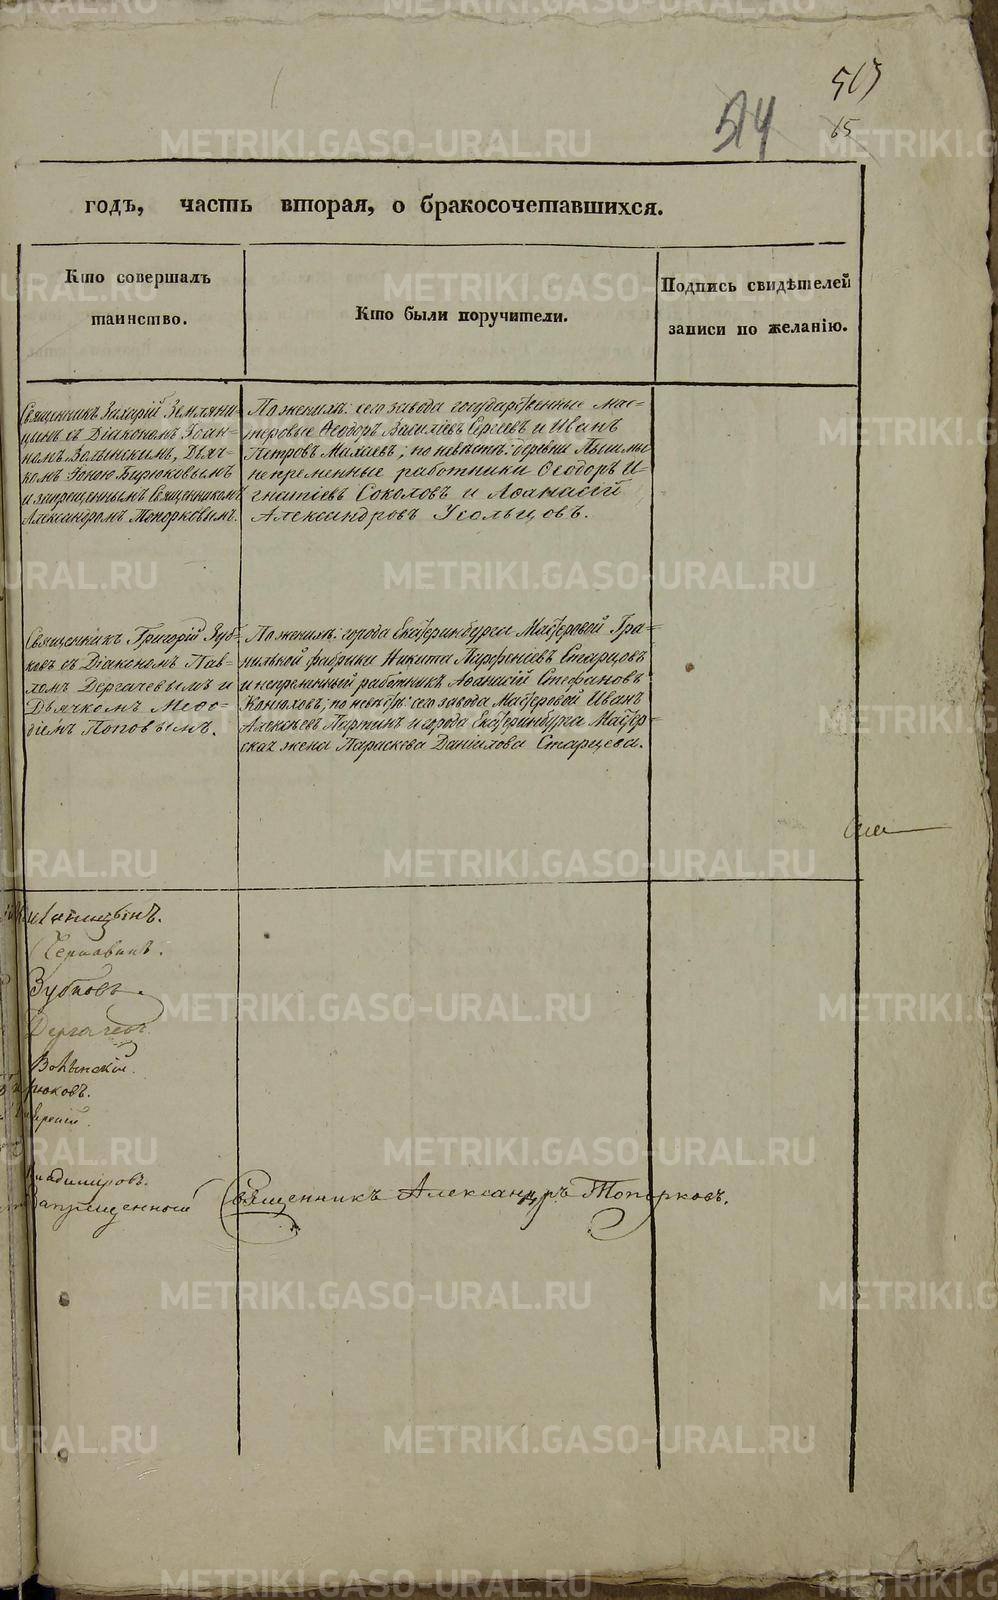 514
65
годъ, часть вторая, о бракосочетавшихся.
Кто совершалъ
таинство.
Кто были поручители.
Подпись свидѣтелей
записи по желанію.
Священникъ Захарій Земляни-
цынъ съ Діакономъ Іоан-
номъ Волынскимъ, Дьяч-
комъ Іоною Бирюковымъ
и запрещеннымъ Священникомъ
Александромъ Топорковымъ.
По женихѣ: сего завода государственные мас-
теровые Ѳеодоръ Василіевъ Сергѣевъ и Иванъ
Петровъ Махаевъ; по невѣстѣ: деревни Пышмы
непременные работники Ѳеодоръ И-
гнатіевъ Соколовъ и Аѳанасій
Александровъ Усольцовъ.
Священникъ Григорій Зуб-
ковъ съ Діакономъ Пав-
ломъ Дергачевымъ и
Дьячкомъ Меѳо-
діемъ Поповымъ.
По женихѣ: города Екатеринбурга Мастеровой Гра-
нильной фабрики Никита Парфеніевъ Старцовъ
и непременный работникъ Аѳанасій Стефановъ
Конюховъ; по невѣстѣ: сего завода Мастеровой Иванъ
Алексѣевъ Партинъ и города Екатеринбурга Мастер-
ская жена Параскева Даніилова Старцева.
Зубковъ.
Дергачевъ.
Волынскій.
рюковъ.
Запрещенной Священникъ Александръ Топорковъ.
METRIKI.GASO-URAL.RU